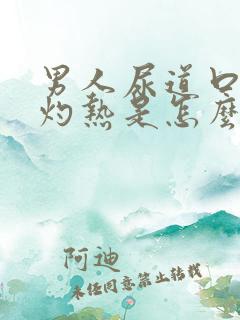 男人尿道口
灼熱是怎麼
阿迪
未经同意禁止转载